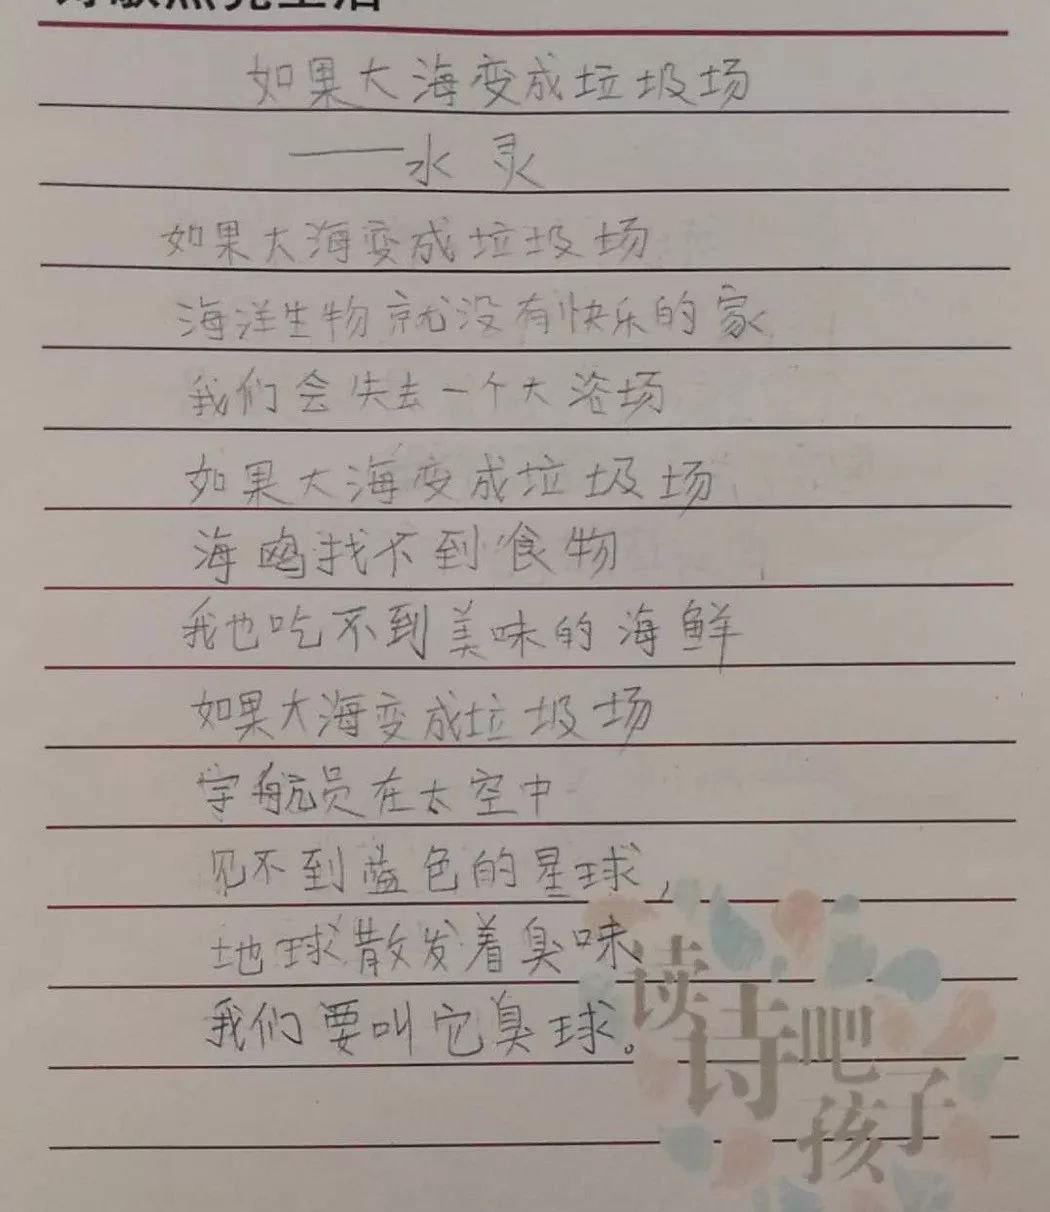 如果大海变成垃圾场
——水灵
如果大海变成垃圾场
海洋生物就没有快乐的家
我们会失去一个大浴场
如果大海变成垃圾场
海鸥找不到食物
我也吃不到美味的海鲜
如果大海变成垃圾场
宇航员在太空中
见不到蓝色的星球，
地球散发着臭味
我们要叫它臭球。
读诗吧孩子